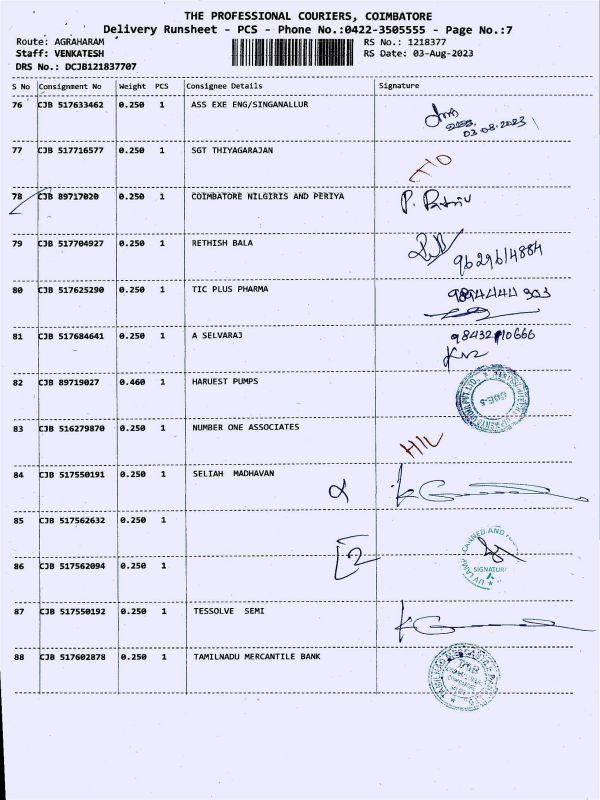 THE PROFESSIONAL COURIERS, COIMBATORE
Delivery Runsheet - PCS - Phone No.:0422-3505555 - Page No.:7
Route: AGRAHARAM RS No.: 1218377
Staff: VENKATESH RS Date: 03-Aug-2023
DRS No.: DCJB121837707
S No Consignment No Weight PCS Consignee Details Signature
76 CJB 517633462 0.250 1 ASS EXE ENG/SINGANALLUR
03.08.2023
77 CJB 517716577 0.250 1 SGT THIYAGARAJAN
78 CJB 89717020 0.250 1 COIMBATORE NILGIRIS AND PERIYA P.
79 CJB 517704927 0.250 1 RETHISH BALA
9629614884
80 CJB 517625290 0.250 1 TIC PLUS PHARMA 9894444303
81 CJB 517684641 0.250 1 A SELVARAJ 9843210666
82 CJB 89719027 0.460 1 HARUEST PUMPS
83 CJB 516279870 0.250 1 NUMBER ONE ASSOCIATES
84 CJB 517550191 0.250 1 SELIAH MADHAVAN
85 CJB 517562632 0.250 1
2
86 CJB 517562094 0.250 1 SIGNATURE
87 CJB 517550192 0.250 1 TESSOLVE SEMI
88 CJB 517602878 0.250 1 TAMILNADU MERCANTILE BANK